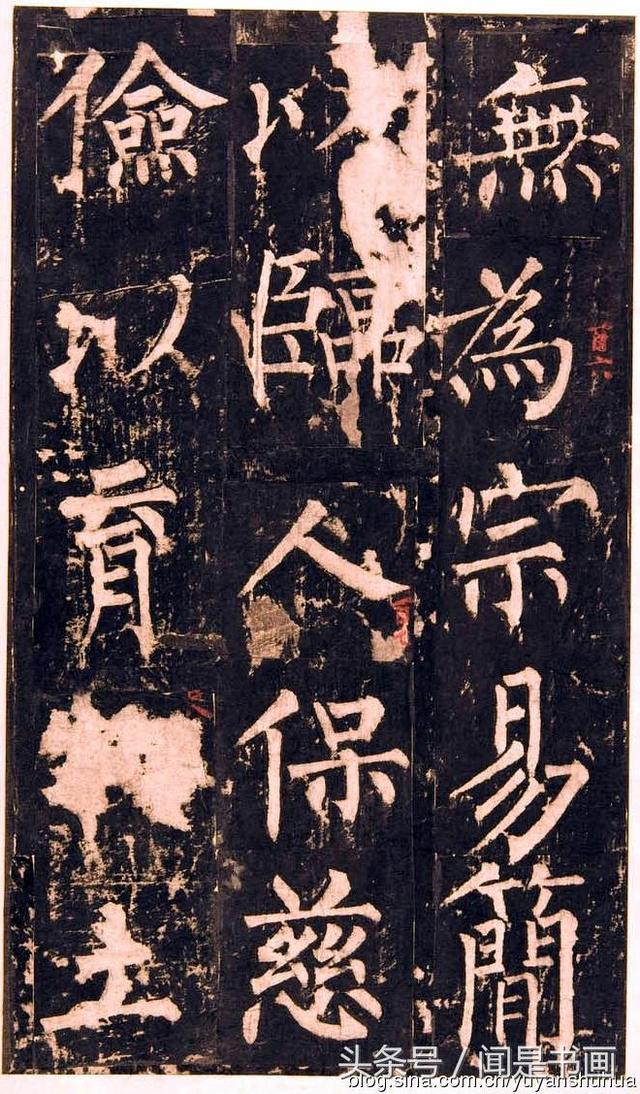 無為宗易簡
以臨人保慈
儉以育土
頭条号 / 闻是书画
blog.sina.com.cn/yuyanshuhua